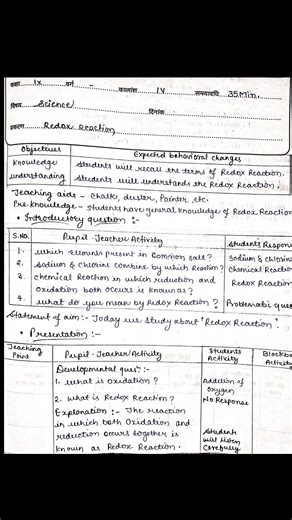 कक्षा IX वर्ग - कालांश IV समयावधि 35 Min.
विषय Science दिनांक
प्रकरण Redox Reaction
Objectives Expected behavioral changes
Knowledge Students will recall the terms of Redox Reaction.
understanding Students will understands the Redox Reaction.
Teaching aids - Chalk, duster, Pointer, etc.
Pre-knowledge - Students have general knowledge of Redox Reaction
• Introductory question :-
S.NO. Pupil-Teacher Activity Students Respons
1. which elements present in Common salt? Sodium & Chlorine
2. Sodium & Chlorine combine by which Reaction? Chemical Reaction
3. chemical Reaction in which reduction and Redox Reaction
oxidation both occurs is known as?
4. what do you mean by Redox Reaction? Problematic ques
Statement of aim :- Today we study about "Redox Reaction".
• Presentation :-
Teaching Point Pupil-Teacher Activity Students Activity Blackbo Activit
Developmental ques :-
1. what is Oxidation? Addition of
oxygen
2. what is Redox Reaction? No Response
Explanation :- The reaction
in which both Oxidation and Student
reduction occurs together is will listen
known as Redox Reaction. Carefully